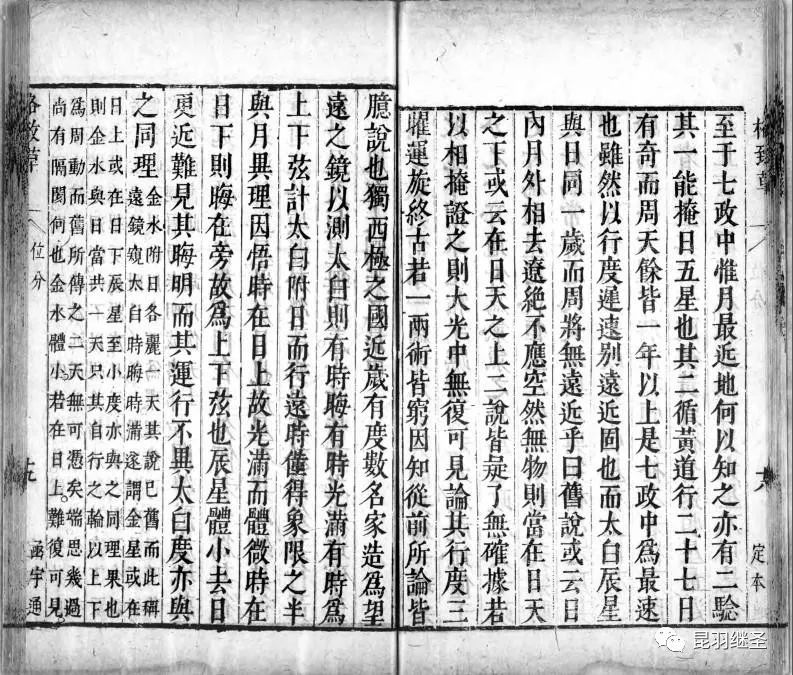 格致草
十八
定本
至于七政中惟月最近地何以知之亦有二騐
其一能掩日五星也其二循黃道行二十七日
有奇而周天餘皆一年以上是七政中為最速
也雖然以行度遲速别遠近固也而太白辰星
與日同一歲而周將無遠近乎曰舊說或云日
內月外相去遼絕不應空然無物則當在日天
之下或云在日天之上二說皆疑了無確據若
以相掩證之則大光中無復可見論其行度三
曜運旋終古若一兩術皆窮因知從前所論皆
臆說也獨西極之國近歲有度數名家造為望
遠之鏡以測太白則有時晦有時光滿有時為
上下弦計太白附日而行遠時僅得象限之半
與月異理因悟時在日上故光滿而體微時在
日下則晦在旁故為上下弦也辰星體小去日
更近難見其晦明而其運行不異太白度亦與
之同理
金水附日各麗一天其說已舊而此稱
遠鏡窺太白時晦時滿遂謂金星或在
日上或在日下辰星至小度亦與之同理果也
則金水與日當共一天只其自行之輪以上下
為周動而舊所傳之二天無可憑矣端思幾過
尚有隔閡何也金水體小若在日上難復可見
格致草
位分
十九
函宇通
昆羽继圣